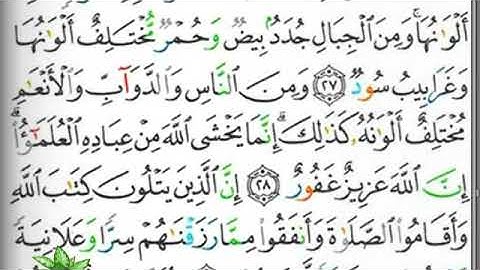 أَلْوَٰنُهَا ۚ وَمِنَ ٱلْجِبَالِ جُدَدٌۢ بِيضٌ وَحُمْرٌ مُّخْتَلِفٌ أَلْوَٰنُهَا
وَغَرَابِيبُ سُودٌ ﴿٢٧﴾ وَمِنَ ٱلنَّاسِ وَٱلدَّوَآبِّ وَٱلْأَنْعَٰمِ
مُخْتَلِفٌ أَلْوَٰنُهُۥ كَذَٰلِكَ ۗ إِنَّمَا يَخْشَى ٱللَّهَ مِنْ عِبَادِهِ ٱلْعُلَمَٰٓؤُا۟ ۗ
إِنَّ ٱللَّهَ عَزِيزٌ غَفُورٌ ﴿٢٨﴾ إِنَّ ٱلَّذِينَ يَتْلُونَ كِتَٰبَ ٱللَّهِ
وَأَقَامُوا۟ ٱلصَّلَوٰةَ وَأَنفَقُوا۟ مِمَّا رَزَقْنَٰهُمْ سِرًّا وَعَلَانِيَةً